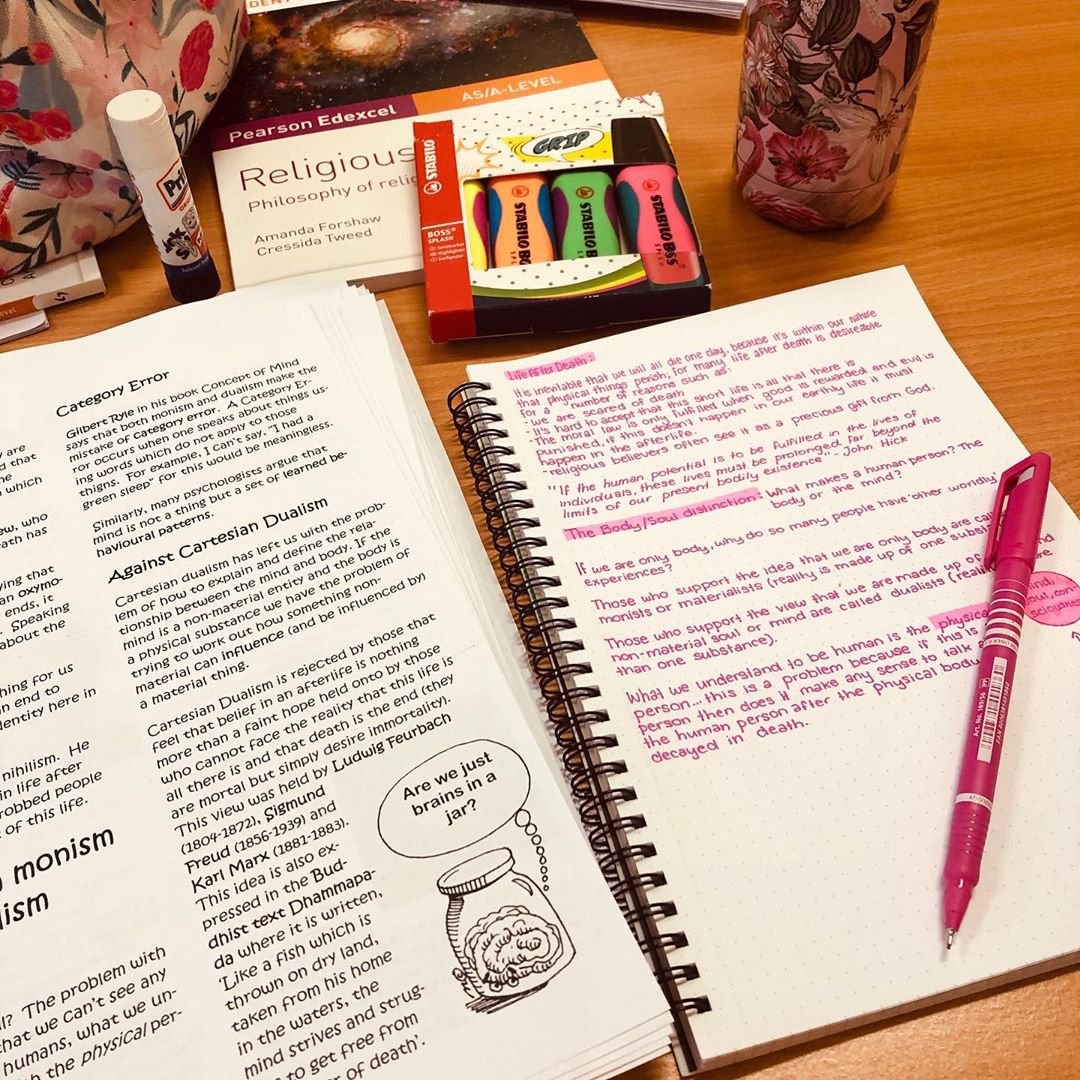 Pearson Edexcel
AS/A-LEVEL
Religious
Philosophy of relig
Amanda Forshaw
Cressida Tweed
Prit
STABILO
GRIP
BOSS
SPLASH
STABILO BO
STABILO B
STABILO BOSS
SPLASH
y are
d that
which
ew, who
eath has
ying that
an oxymo-
ends, it
Speaking
about the
hing for us
n end to
dentity here in
nihilism. He
in life after
robbed people
t of this life.
monism
lism
l? The problem with
hat we can't see any
humans, what we un-
the physical per-
Category Error
Gilbert Ryle in his book Concept of Mind
says that both monism and dualism make the
mistake of category error. A Category Er-
ror occurs when one speaks about things us-
ing words which do not apply to those
thigns. For example, I can't say, "I had a
green sleep" for this would be meaningless.
Similarly, many psychologists argue that
mind is not a thing but a set of learned be-
havioural patterns.
Against Cartesian Dualism
Cartesian dualism has left us with the prob-
lem of how to explain and define the rela-
tionship between the mind and body. If the
mind is a non-material entity and the body is
a physical substance we have the problem of
trying to work out how something non-
material can influence (and be influenced by)
a material thing.
Cartesian Dualism is rejected by those that
feel that belief in an afterlife is nothing
more than a faint hope held onto by those
who cannot face the reality that this life is
all there is and that death is the end (they
are mortal but simply desire immortality).
This view was held by Ludwig Feurbach
(1804-1872), Sigmund
Freud (1856-1939) and
Karl Marx (1881-1883).
This idea is also ex-
pressed in the Bud-
dhist text Dhammapa-
da where it is written,
'Like a fish which is
thrown on dry land,
taken from his home
in the waters, the
mind strives and strug-
to get free from
of death'.
Are we just
brains in a
jar?
Life After Death:
It is inevitable that we will all die one day, because it's within our nature
that physical things perish; for many life after death is desireable
for a number of reasons such as:
- we are scared of death
- it's hard to accept that this short life is all that there is
- The moral law is only fulfilled when good is rewarded and evil is
punished, if this doesn't happen in our earthly life it must
happen in the afterlife.
- religious believers often see it as a precious gift from God.
"If the human potential is to be fulfilled in the lives of
individuals, these lives must be prolonged far beyond the
limits of our present bodily existence" - John Hick
The Body/Soul distinction: What makes a human person? The
body or the mind?
If we are only body, why do so many people have 'other worldly'
experiences?
Those who support the idea that we are only body are call
monists or materialists (reality is made up of one subst
Those who support the view that we are made up of
non-material soul or mind are called dualists (reali
than one substance).
What we understand to be human is the physica
person... this is a problem because if this is
person then does it make any sense to talk
the human person after the physical body
decayed in death.
mind,
soul, con-
sciousness
Art. No. 189/56